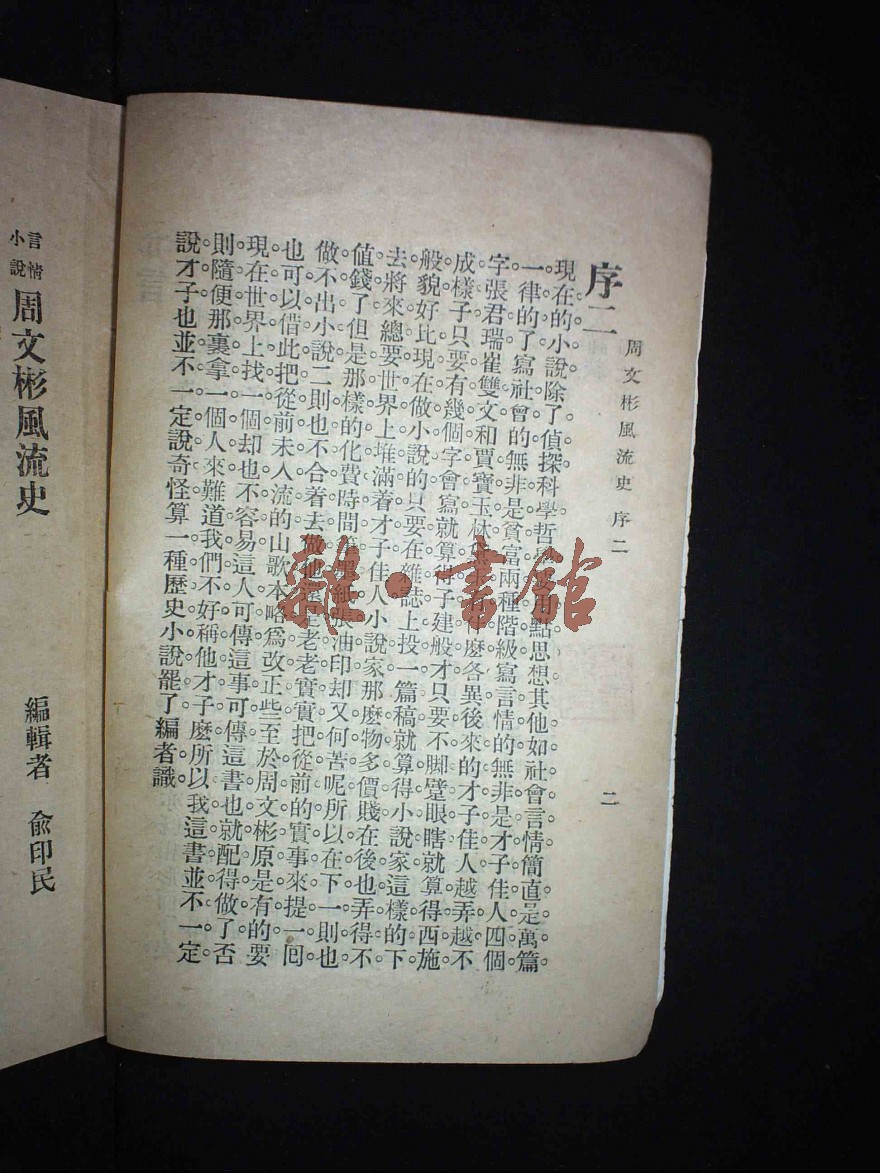 周文彬風流史 序二
二
序二
現在的小說除了偵探科學哲學 用點思想其他如社會言情簡直是萬篇
一律的了寫社會的無非是貧富兩種階級寫言情的無非是才子佳人四個
字張君瑞崔雙文和賈寶玉林 什麽各異後來的才子佳人越弄越不
成樣子只要有幾個字會寫就算得子建般才只要不脚蹩眼瞎就算得西施
般貌好比現在做小說的只要在雜誌上投一篇稿就算得小說家這樣的下
去將來總要世界上堆滿着才子佳人小說家那麽物多價賤在後也弄得不
值錢了但是那樣的化費時間 紙張油印却又何苦呢所以在下一則也
做不出小說二則也不合着去做他 老老實實把從前的實事來提一囘
也可以借此把從前未入流的山歌本略爲改正些至於周文彬原是有的要
現在世界上找一個却也不容易這人可傳這事可傳這書也就配得做了否
則隨便那裏拿一個人來難道我們不好稱他才子麽所以我這書並不一定
說才子也並不一定說奇怪算一種歷史小說罷了編者識
言情小說
周文彬風流史
編輯者 俞印民
雜·書館